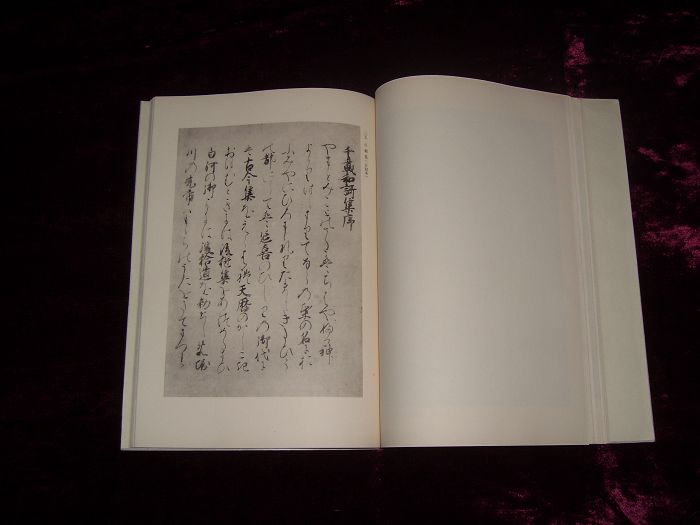 千載和謌集序
やまとみことのうたはちはやふる神
よよりはしまりてならの葉の名にお
ふみやにひろまれりたましきたひら
の都にしては延喜のひしりの御代に
は古今集をえらはれ天暦のかしこき
おほむときには後撰集をあつめたまひ
白河の御よには後拾遺を勅せしめ堀
川の先帝はももちのうたをたてまつら